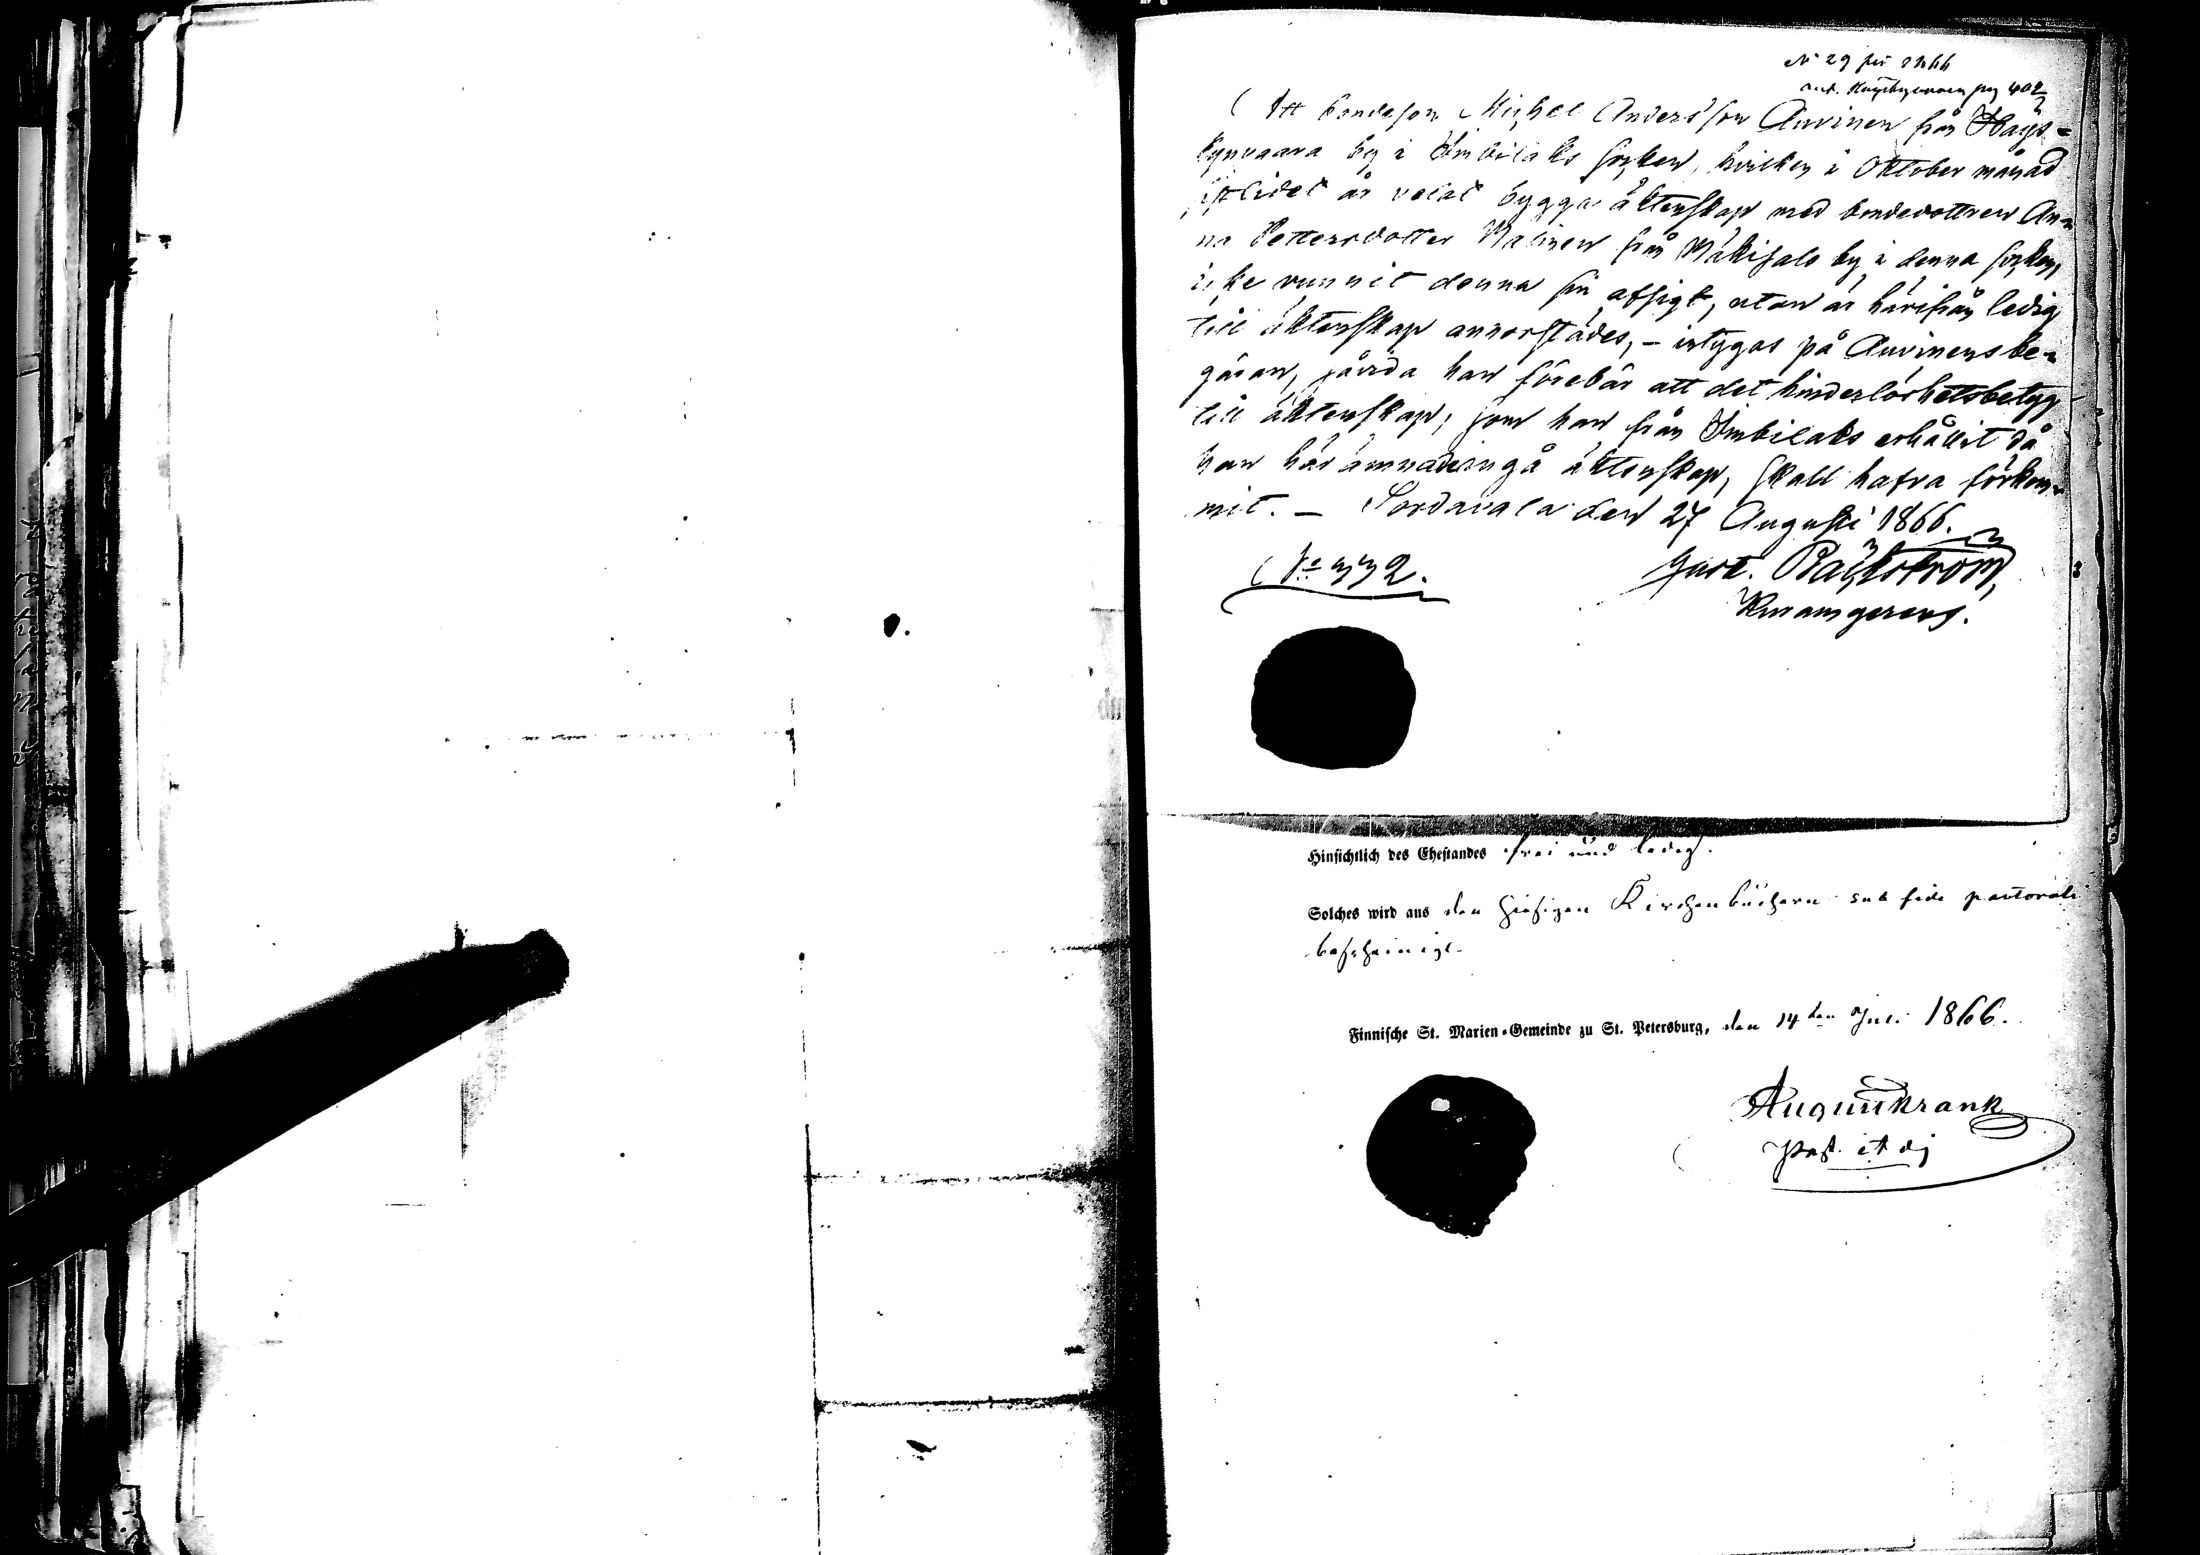 N 29 för 1866
ant. Käyskynvaara pag 402
Att bondeson Michel Andersson Auvinen från Käys-
kynvaara by i Imbilaks socken, hvilken i Oktober månad
sistlidet år velat bygga äktenskap med bondedottren An-
na Pettersdotter Malinen från Mäkisalo by i denna socken,
icke vunnit denna sin afsigt, utan är härifrån ledig
till äktenskap annorstädes, – intygas på Auvinens be-
gäran, såvida han förebär att det hinderlöshetsbetyg
till äktenskap, som han från Imbilaks erhållit då
han här ämnade ingå äktenskap, skall hafva förkom-
mit. – Sordavala den 27 Augusti 1866.
No 332.
Gust.
Hinsichtlich des Ehestandes frei und ledig.
Solches wird aus den hiesigen Kirchenbüchern sub fide pastorali
bescheinigt.
Finnische St. Marien-Gemeinde zu St. Petersburg, den 14ten Juli 1866.
August Krank
Past. et dj